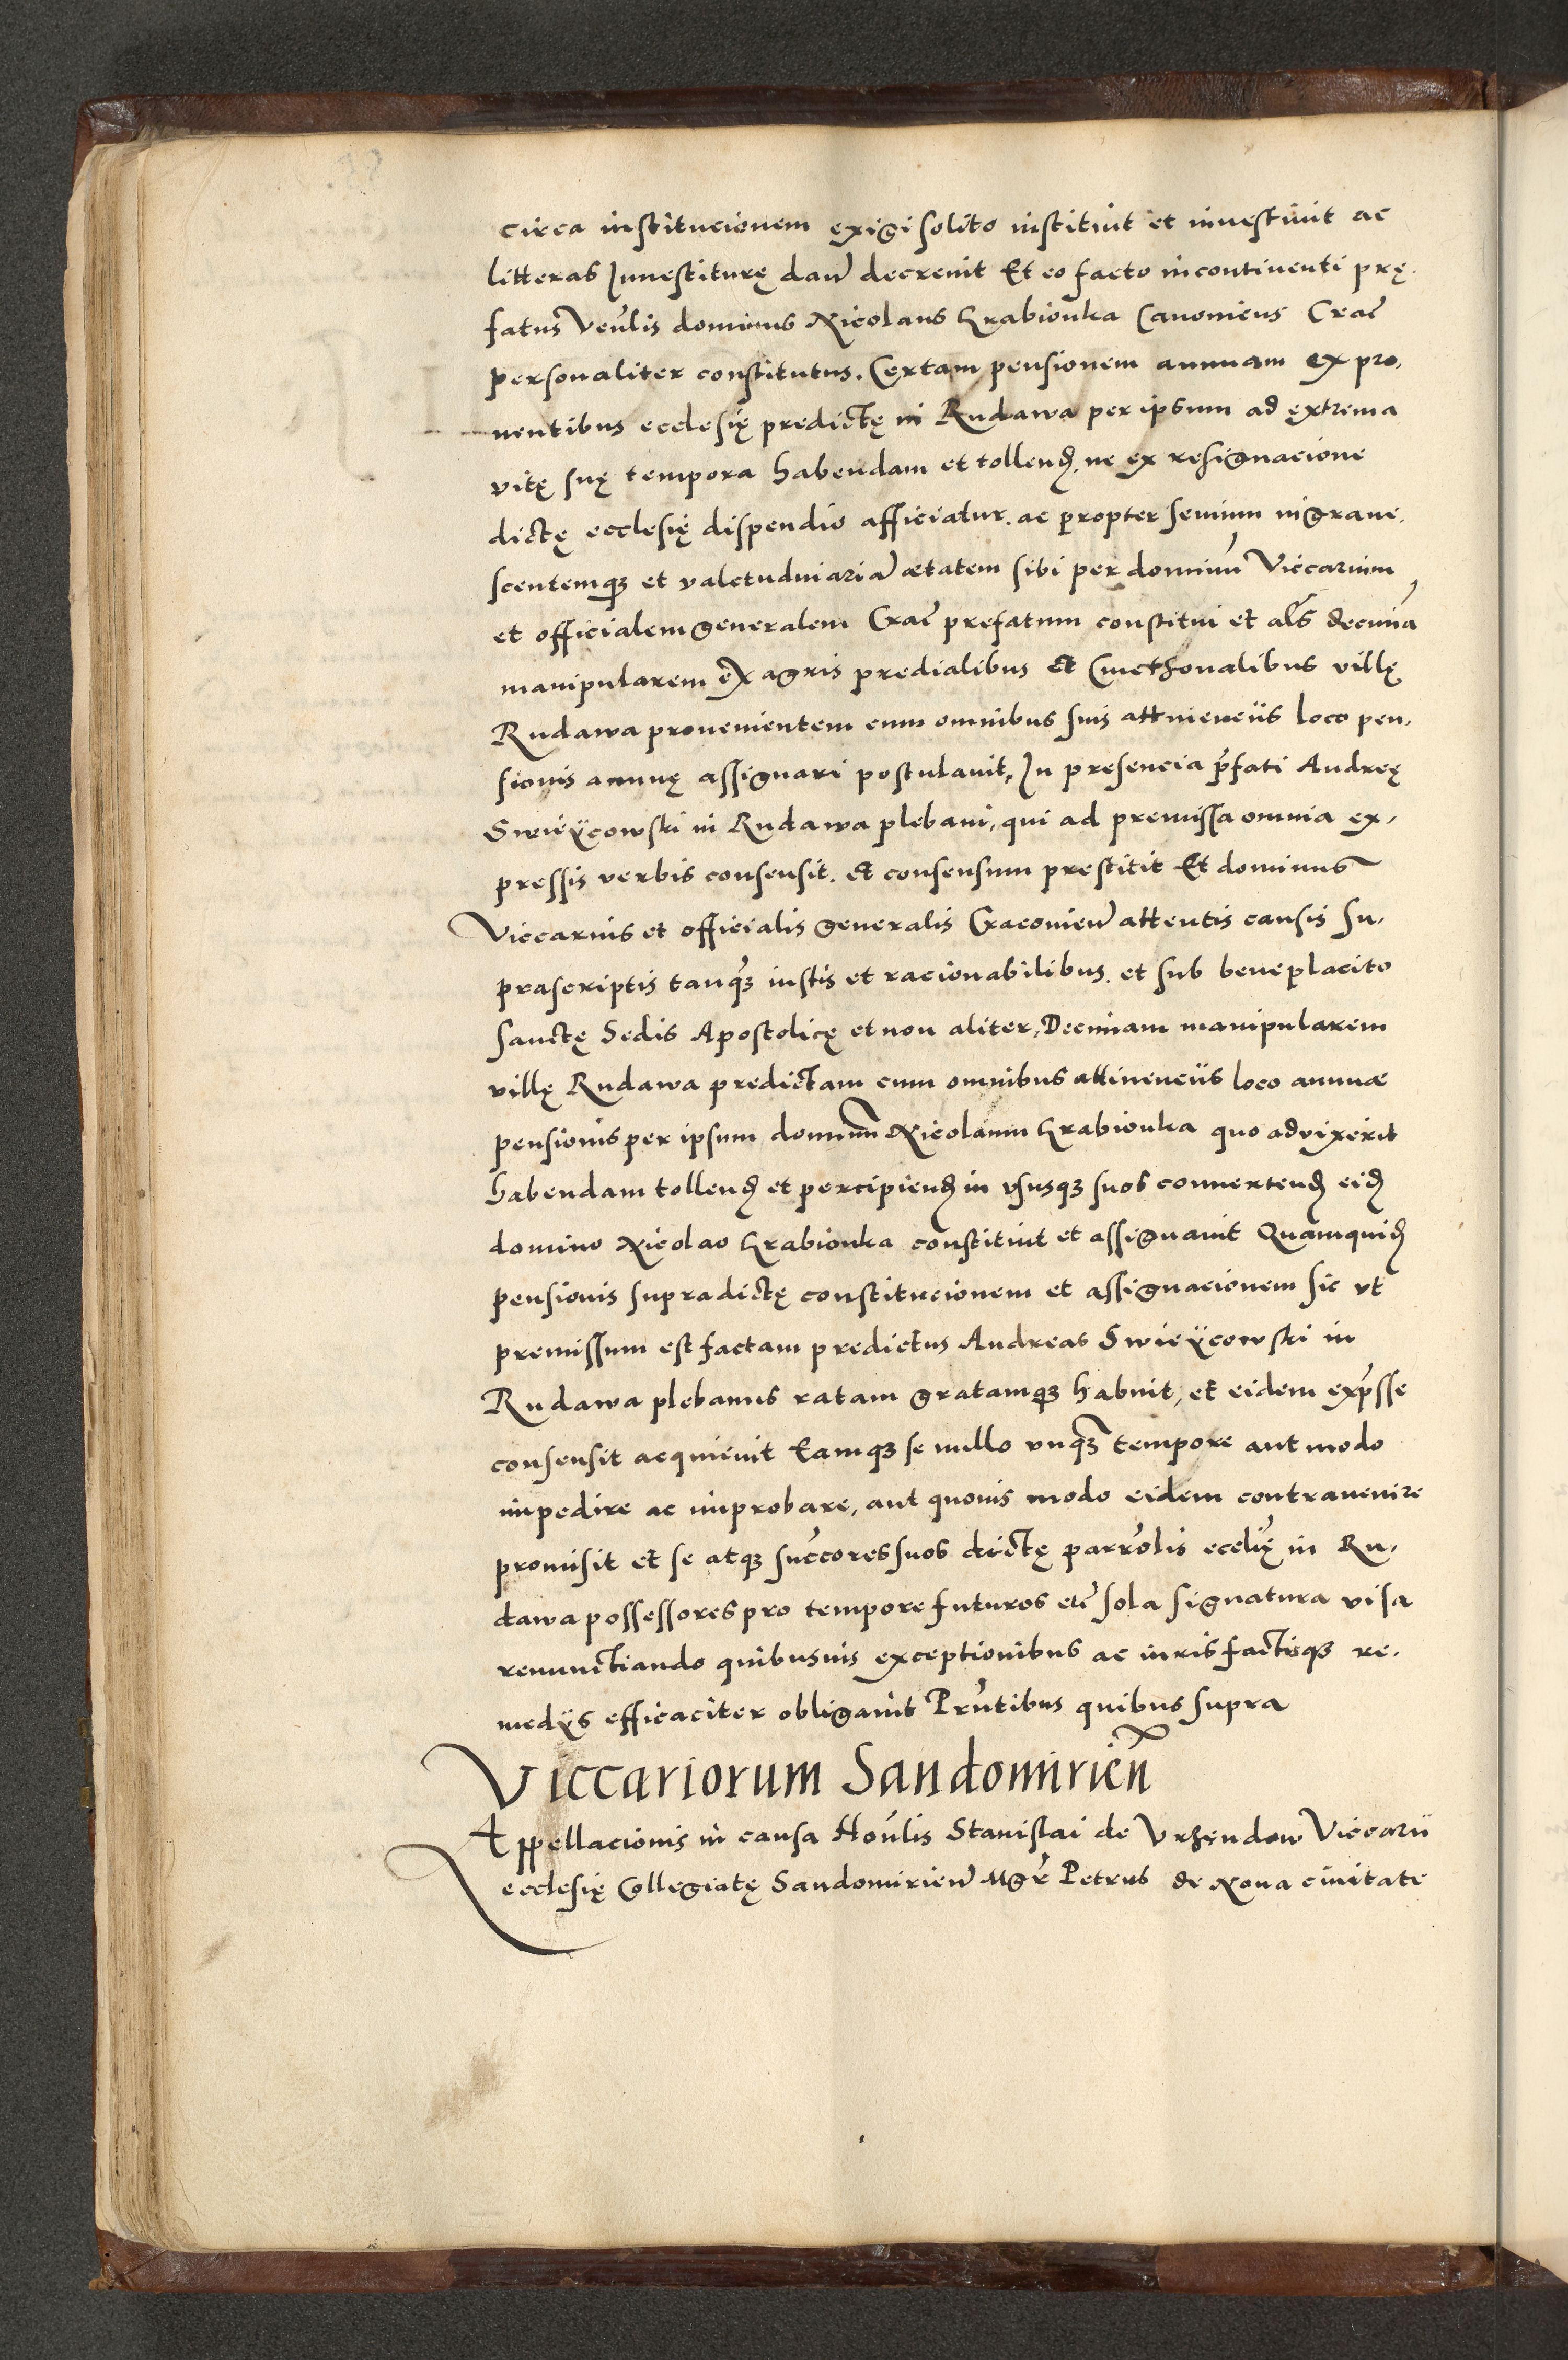 circa institucionem exigi solito instituit et inuestiuit ac
litteras Inuestiturę dan̄ decreuit Et eo facto incontinenti prę.
fatus Ven̄lis dominus Nicolaus Grabionka Canonicus Crac̄
personaliter constitutus. Certam pensionem annuam ex pro,
uentibus ecclesię predictę in Rudawa per ipsum ad extrema
vitę suę tempora habendam et tollend. ne ex resignacione
dictę ecclesię dispendio afficiatur. ac propter senium ingraue.
scentemqꝫ et valetudinariā ætatem sibi per dominū Viccarium
et officialem generalem Crac̄ prefatum constitui et al̄s decimā
manipularem ex agris predialibus et Cmethonalibus villę
Rudawa prouenientem cum omnibus suis attinenciis loco pen,
sionis annuę assignari postulauit, In presencia p̄fati Andreę
Swieÿcowski in Rudawa plebani, qui ad premissa omnia ex,
pressis verbis consensit. et consensum prestitit Et dominus
Viccarius et officialis generalis Cracouien̄ attentis causis su,
prascriptis tanqꝫ iustis et racionabilibus. et sub beneplacito
Sanctę Sedis Apostolicę et non aliter, Decimam manipularem
villę Rudawa predictam cum omnibus attinenciis loco annuæ
pensionis per ipsum dominum Nicolaum Grabionka quo advixerit
habendam tollend et percipiend in vsusqꝫ suos conuertend eid
domino Nicolao Grabionka constituit et assignauit Quamquid
pensionis supradictę constitucionem et assignacionem sic vt
premissum est factam predictus Andreas Swieÿcowski in
Rudawa plebanus ratam gratamqꝫ habuit, et eidem exp̄sse
consensit acquieuit Eamqꝫ se nullo vnqꝫ tempore aut modo
impedire ac improbare, aut quouis modo eidem contrauenire
promisit et se atqꝫ succ̄ores suos dictę parr̄olis eccl̄ię in Ru,
dawa possessores pro tempore futuros etc̄ sola signatura visa
renunctiando quibusuis exceptionibus ac iuris factisqꝫ re.
medÿs efficaciter obligauit Pn̄tibus quibus supra
Viccariorum Sandomirien̄
Appellacionis in causa Hon̄lis Stanislai de Vrzendow Viccarii
ecclesię Collegiatę Sandomirien̄ Mgr̄ Petrus de Noua ciuitate